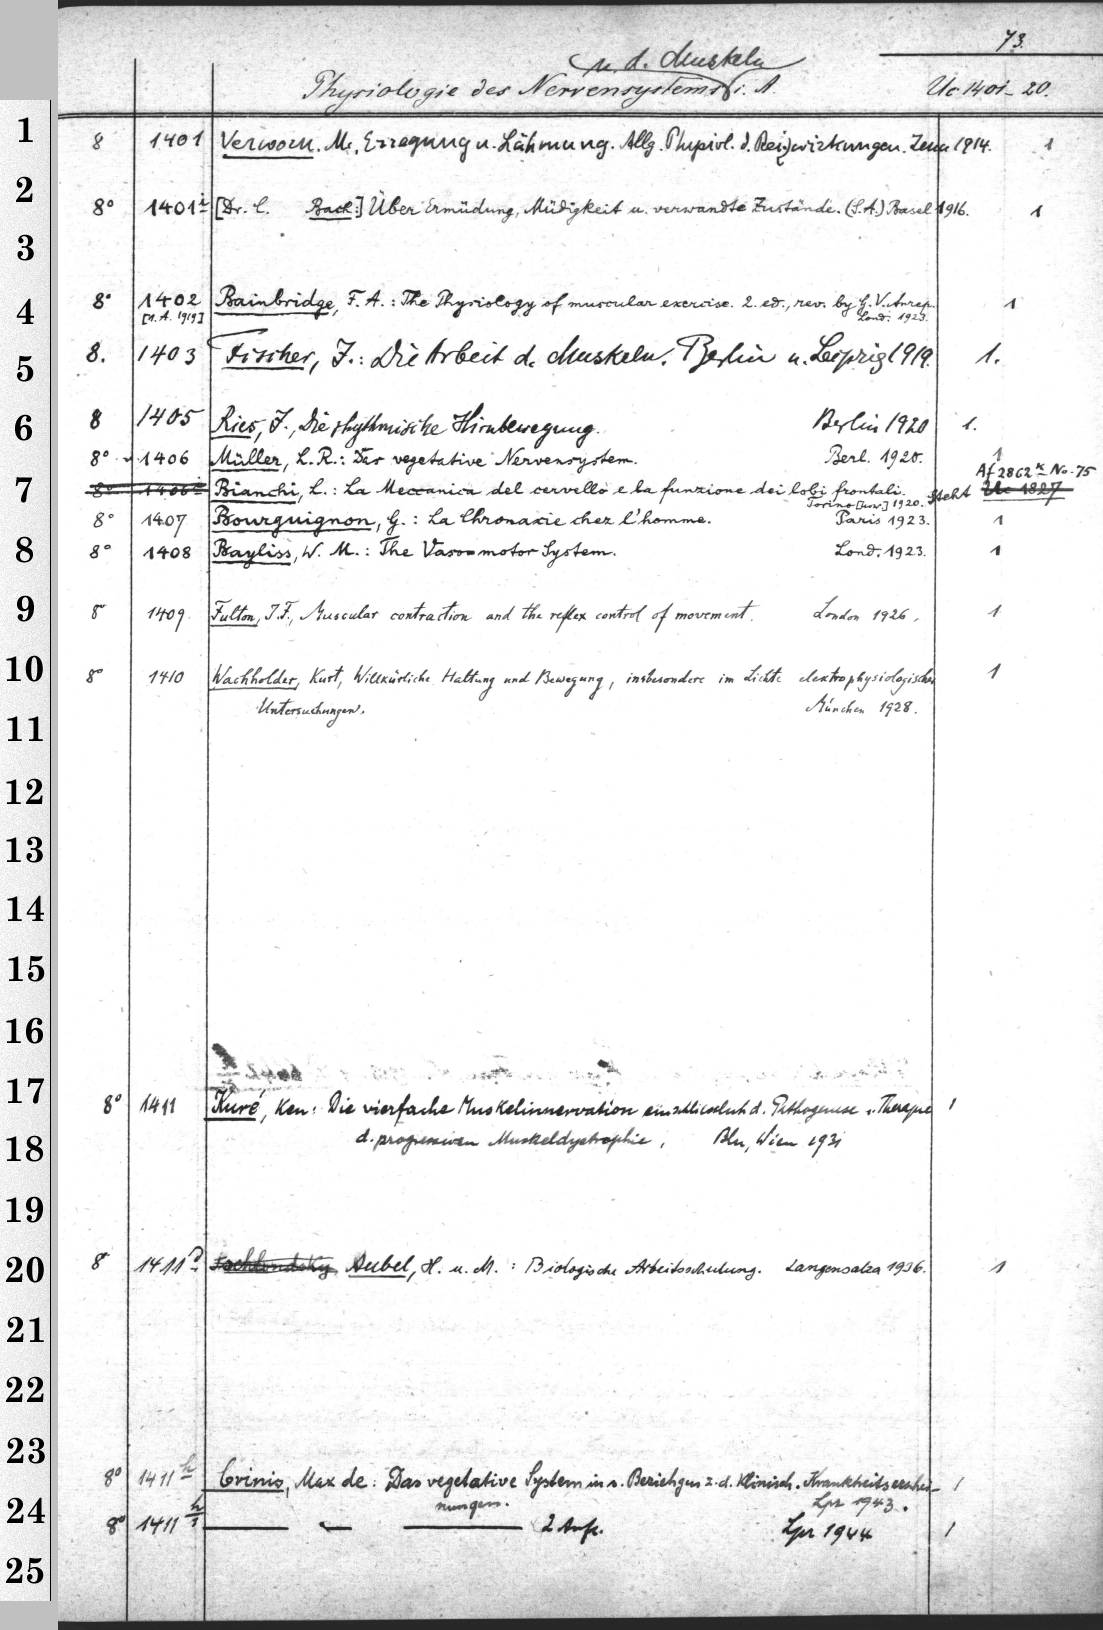 73.
u. d. Muskeln
Physiologie des Nervensystems i. A. Uc 1401-20.
1 8 1401 Verworn. M., Erregung u. Lähmung. Allg. Physiol. d. Reizwirkungen. Jena 1914. 1
2 8° 1401 [Dr. E. Back:] Über Ermüdung, Müdigkeit u. verwandte Zustände. (S.A.) Basel 1916. 1
3
4 8° 1402 Bainbridge, F. A.: The Physiology of muscular exercise. 2. ed., rev. by G. V. Anrep. 1
[1. A. 1919] Lond. 1923.
5 8. 1403 Fischer, J.: Die Arbeit d. Muskeln. Berlin u. Leipzig 1919. 1.
6 8 1405 Ries, J., Die rhythmische Hirnbewegung. Berlin 1920 1.
8° 1406 Müller, L. R.: Das vegetative Nervensystem. Berl. 1920. 1
Af 2862 No. 75
7 8° 1406 Bianchi, L.: La Meccanica del cervello e la funzione dei lobi frontali. steht Uc 1827
Torino 1920.
8° 1407 Bourguignon, G.: La Chronaxie chez l'homme. Paris 1923. 1
8 8° 1408 Bayliss, W. M.: The Vaso-motor System. Lond. 1923. 1
9 8° 1409 Fulton, J.F., Muscular contraction and the reflex control of movement. London 1926, 1
10 8° 1410 Wachholder, Kurt, Willkürliche Haltung und Bewegung, insbesondere im Lichte elektrophysiologischer 1
Untersuchungen. München 1928.
11
12
13
14
15
16
17 8° 1411 Kuré, Ken: Die vierfache Muskelinnervation einschliesslich d. Pathogenese u. Therapie 1
18 d. progressiven Muskeldystrophie, Bln, Wien 1931
19
20 8° 1411 Aubel, H. u. M.: Biologische Arbeitsschulung. Langensalza 1936. 1
21
22
23
8° 1411 h Crinis, Max de: Das vegetative System in s. Beziehgen z. d. klinisch. Krankheitserschei- 1
24 nungen. Lpz 1943.
8° 1411 h — — — 2 Aufl. Lpz 1944 1
25